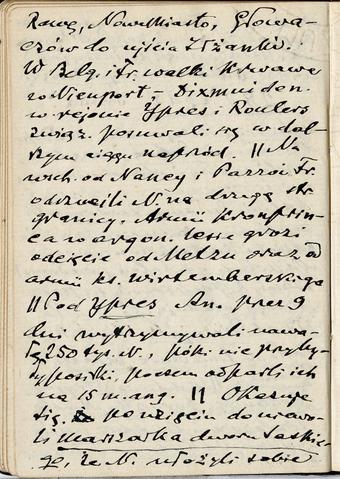 Rawę, Nowe Miasto, Głowa-
czów do ujścia Iłżanki.
W Belg. i Fr. walki krwawe
w Nieuport, – Dixmuiden.
w rejonie Ypres i Roulers
związ. posuwali się w dal-
szym ciągu naprzód. || Na
wsch. od Nancy i Parroi Fr.
odrzucili N. na drugą str.
granicy. Armii Kronprin-
ca w argon. lesie grozi
odcięcie od Metzu oraz od
armii ks. Wirtemberskiego
|| Pod Ypres An. przez 9
dni wytrzymywali nawa-
łę 250 tys. N., póki nie przyby-
ły posiłki, poczem odparli ich
na 15 m. ang. || Okazuje
się, po wzięciu do niewo-
li marszałka dworu saskie-
go, że N. ułożyli sobie